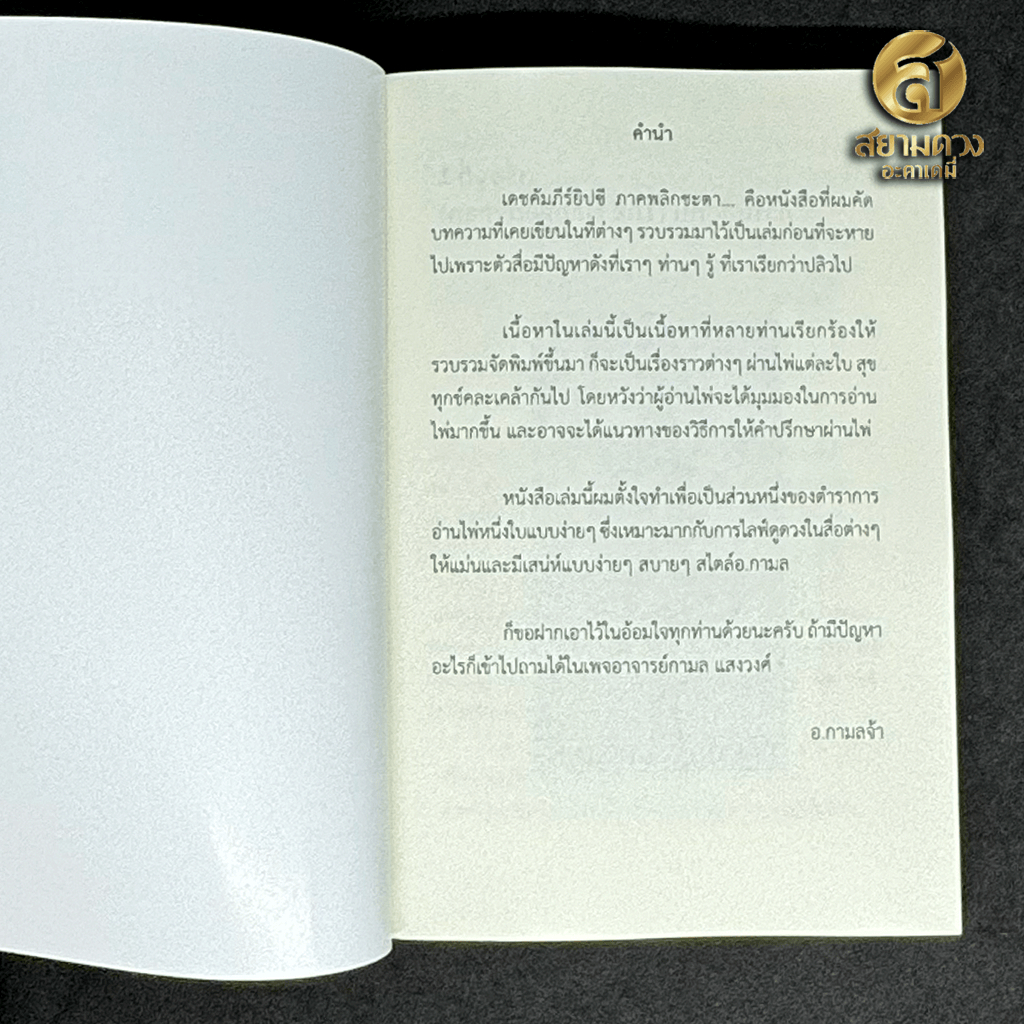 ส
สยามดวง
อะคาเดมี่
คำนำ
เดชคัมภีร์ยิปซี ภาคพลิกชะตา.... คือหนังสือที่ผมคัด
บทความที่เคยเขียนในที่ต่างๆ รวบรวมมาไว้เป็นเล่มก่อนที่จะหาย
ไปเพราะตัวสื่อมีปัญหาดังที่เราๆ ท่านๆ รู้ ที่เราเรียกว่าปลิวไป
เนื้อหาในเล่มนี้เป็นเนื้อหาที่หลายท่านเรียกร้องให้
รวบรวมจัดพิมพ์ขึ้นมา ก็จะเป็นเรื่องราวต่างๆ ผ่านไพ่แต่ละใบ สุข
ทุกข์คละเคล้ากันไป โดยหวังว่าผู้อ่านไพ่จะได้มุมมองในการอ่าน
ไพ่มากขึ้น และอาจจะได้แนวทางของวิธีการให้คำปรึกษาผ่านไพ่
หนังสือเล่มนี้ผมตั้งใจทำเพื่อเป็นส่วนหนึ่งของตำราการ
อ่านไพ่หนึ่งใบแบบง่ายๆ ซึ่งเหมาะมากกับการไลฟ์ดูดวงในสื่อต่างๆ
ให้แม่นและมีเสน่ห์แบบง่ายๆ สบายๆ สไตล์อ.กามล
ก็ขอฝากเอาไว้ในอ้อมใจทุกท่านด้วยนะครับ ถ้ามีปัญหา
อะไรก็เข้าไปถามได้ในเพจอาจารย์กามล แสงวงศ์
อ.กามลจ้า